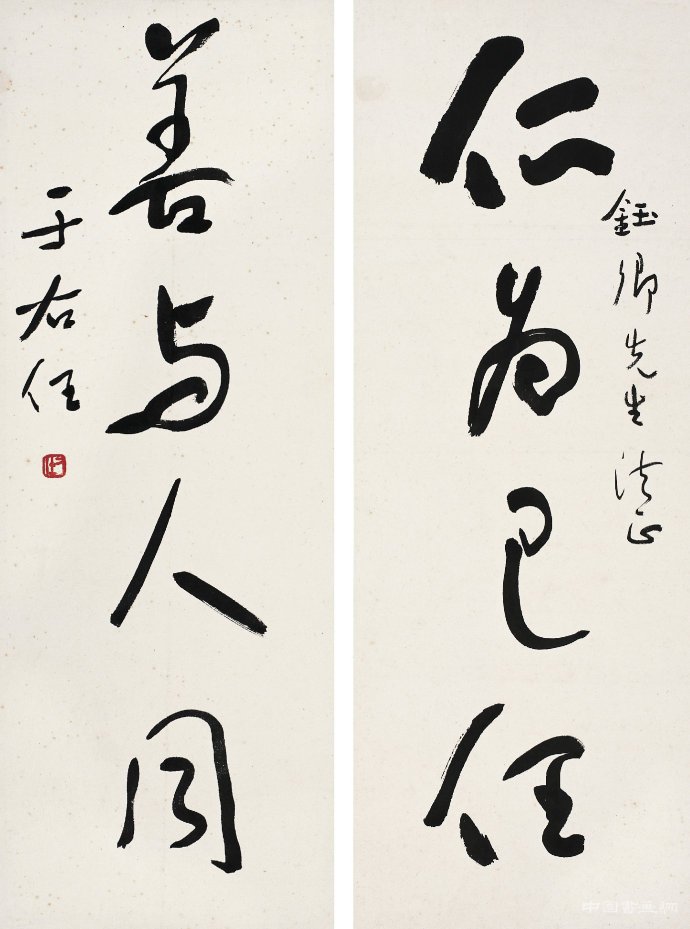 仁为己任
鈺卿先生法正
善与人同
于右任
中国书画网